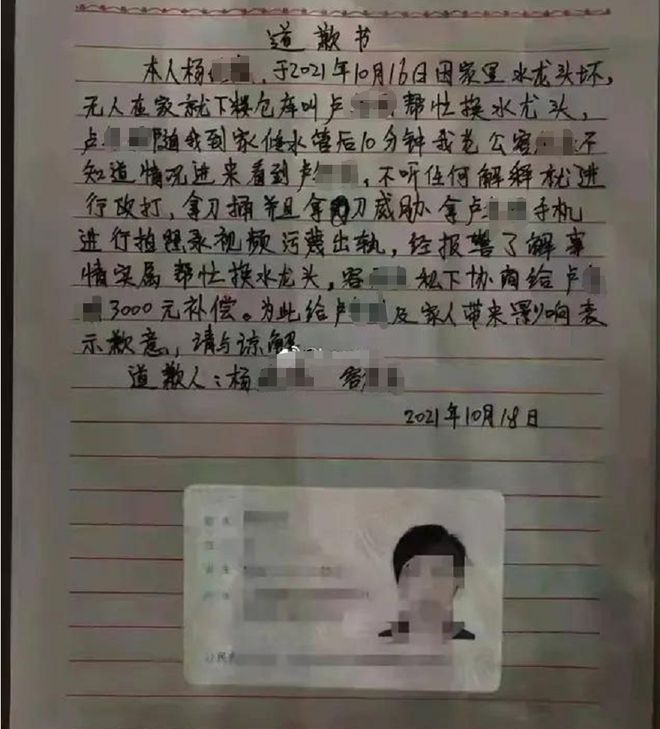 道歉书
本人杨 ，于2021年10月16日因家里水龙头坏，
无人在家就下楼仓库叫卢 帮忙换水龙头，
卢 随我到家修水管后10分钟我老公容 不
知道情况进来看到卢 ，不听任何解释就进
行攻打，拿刀捅并且拿 刀威胁拿卢 手机
进行拍照录视频污蔑出轨，经报警了解事
情实属帮忙换水龙头，容 私下协商给卢
3000元补偿。为此给卢 及家人带来影响表
示歉意，请与谅解
道歉人：杨 容
2021年10月18日
公民